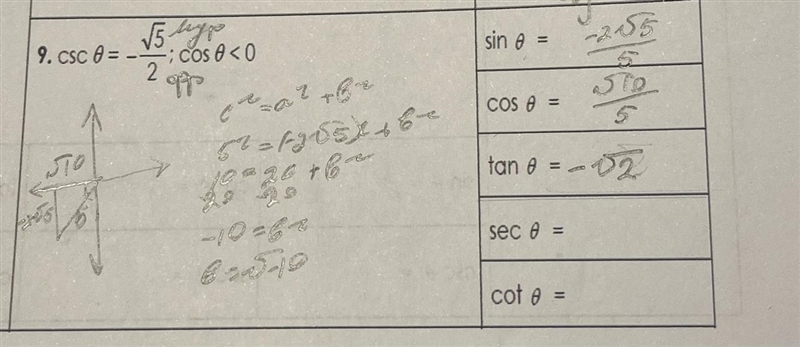 9. csc θ = -√5/2 ; cos θ < 0
hyp
opp
c² = a² + b²
5² = (-2√5)² + b²
10 = 20 + b²
20 20
-10 = b²
b = √-10
√10
-2√5
5
sin θ = -2√5/5
cos θ = √10/5
tan θ = -√2
sec θ =
cot θ =